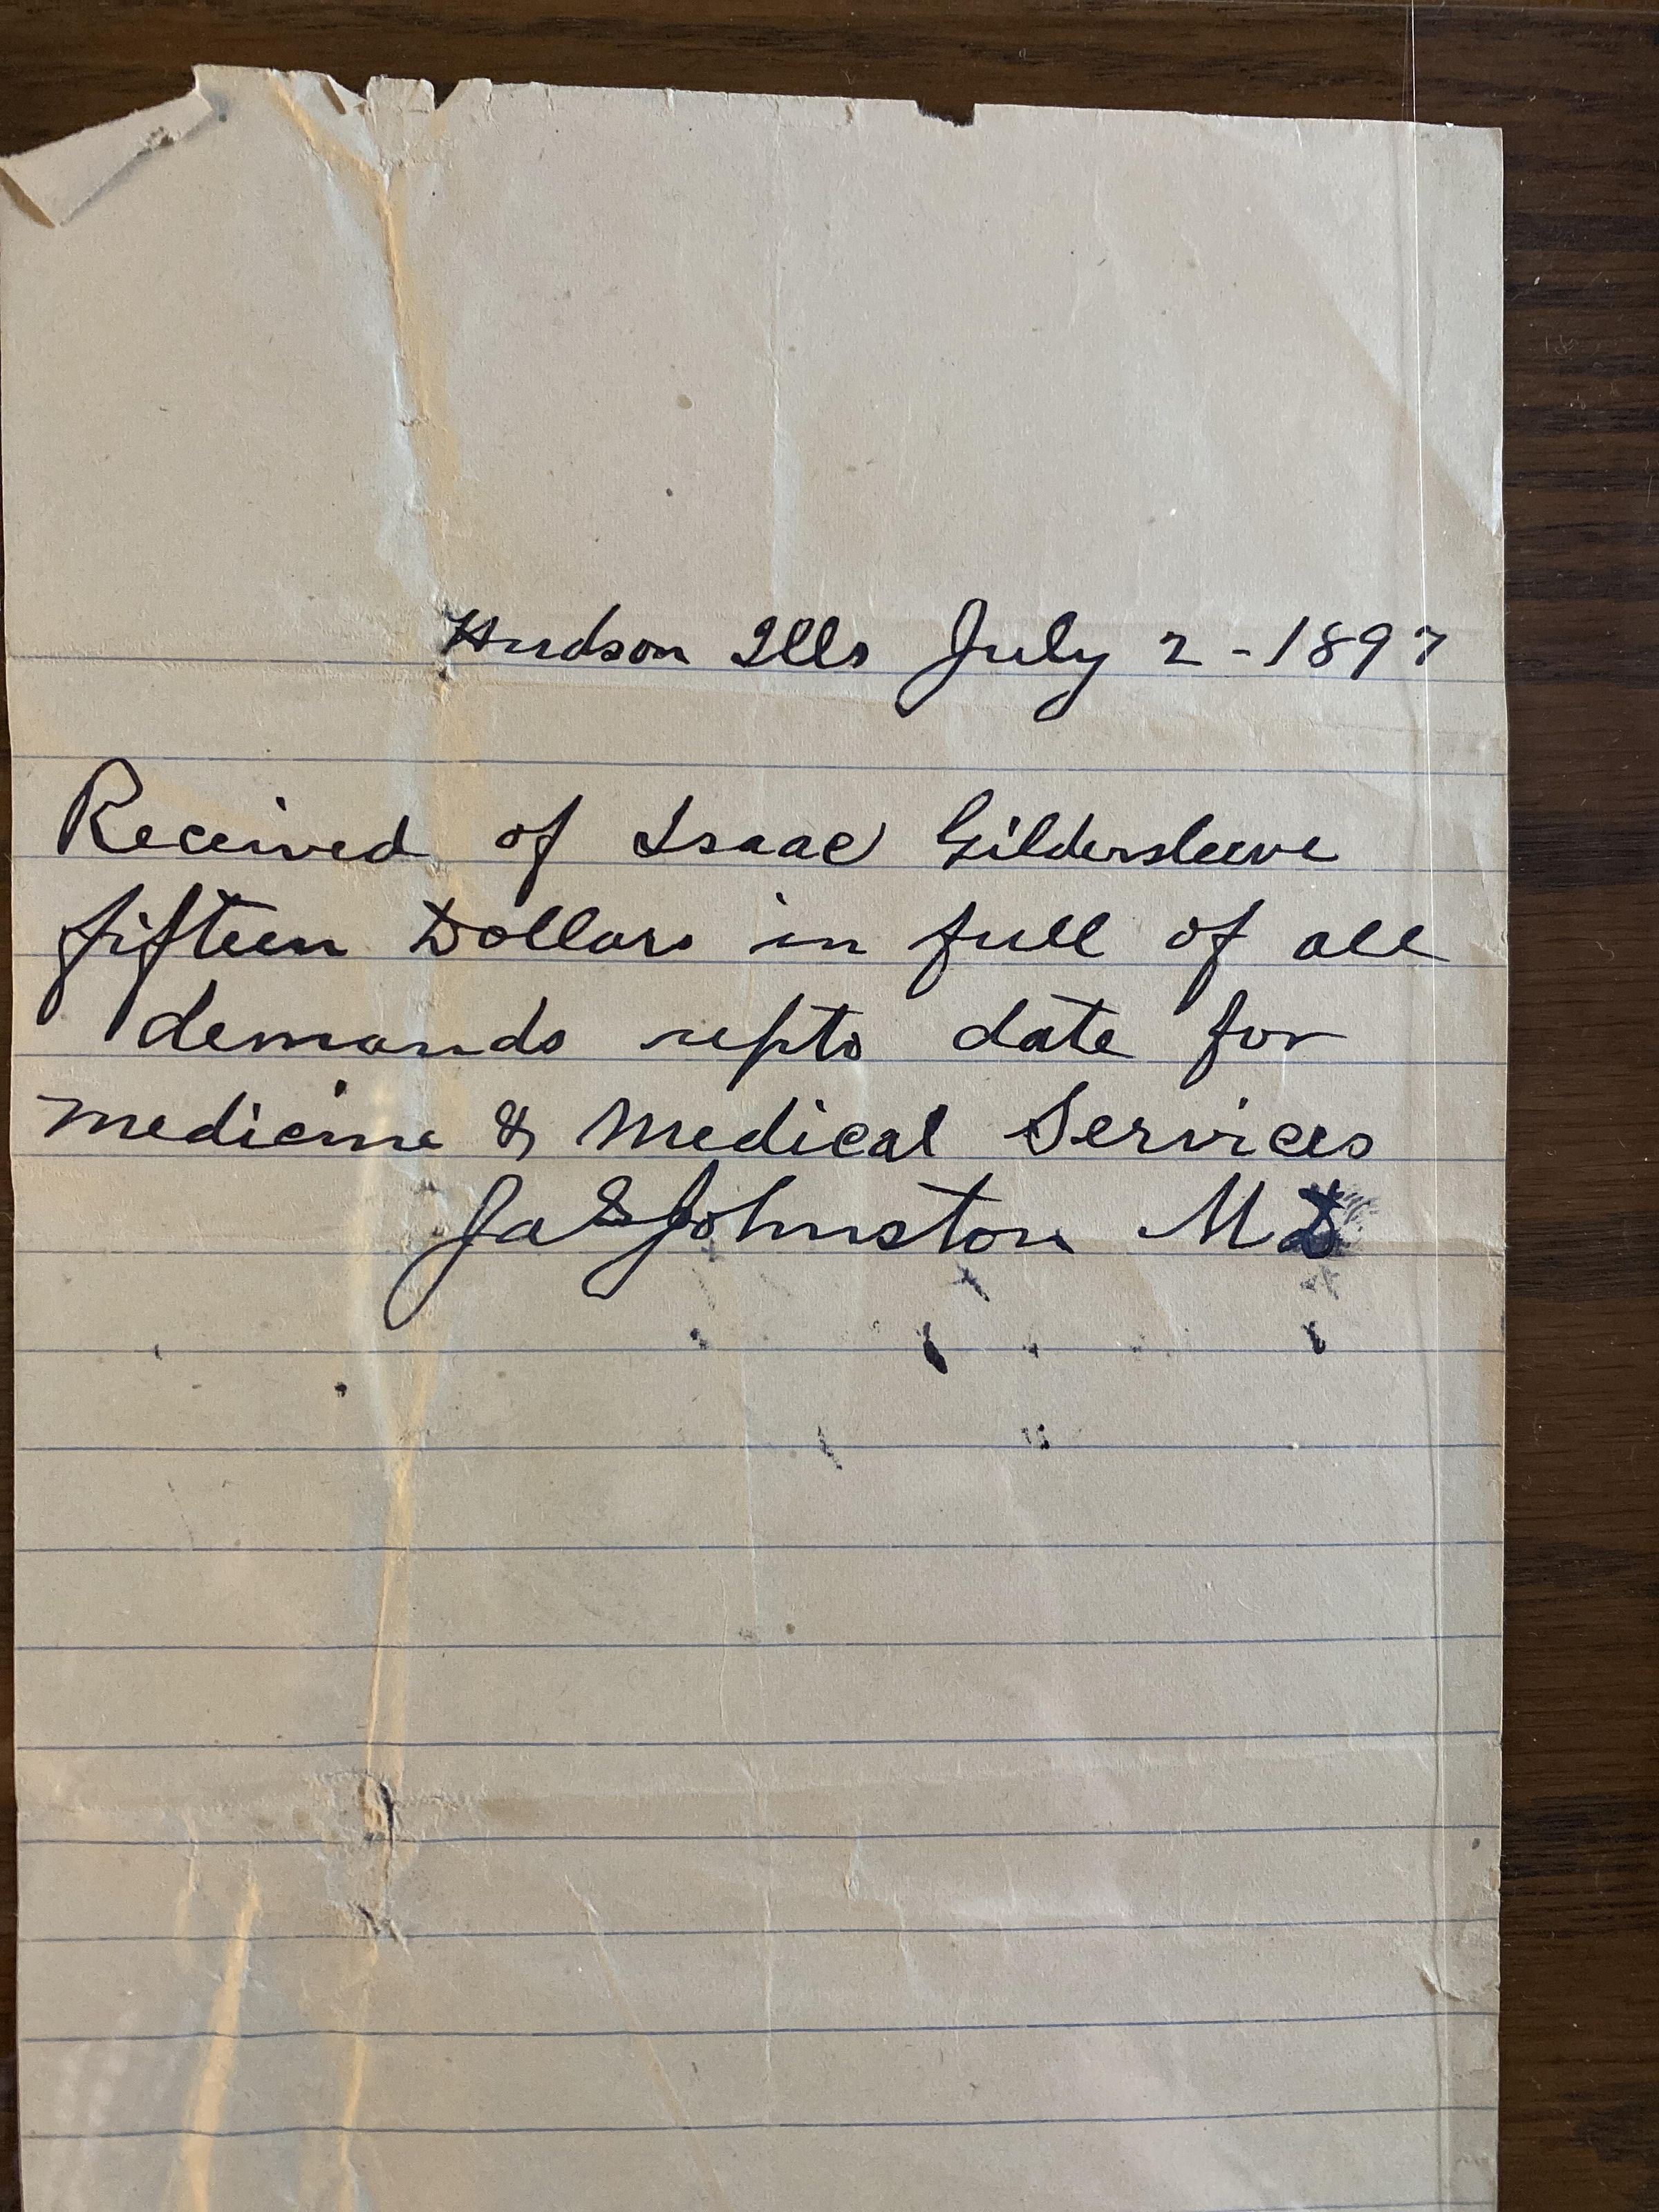 Hudson Ills July 2 - 1897
Received of Isaac Gildersleeve
fifteen Dollars in full of all
demands upto date for
medicine & Medical Services
Johnston MD